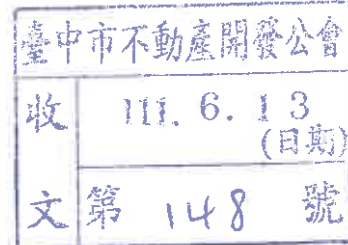 臺中市不動產開發公會
收 111. 6. 13
(日期)
文 第 148 號